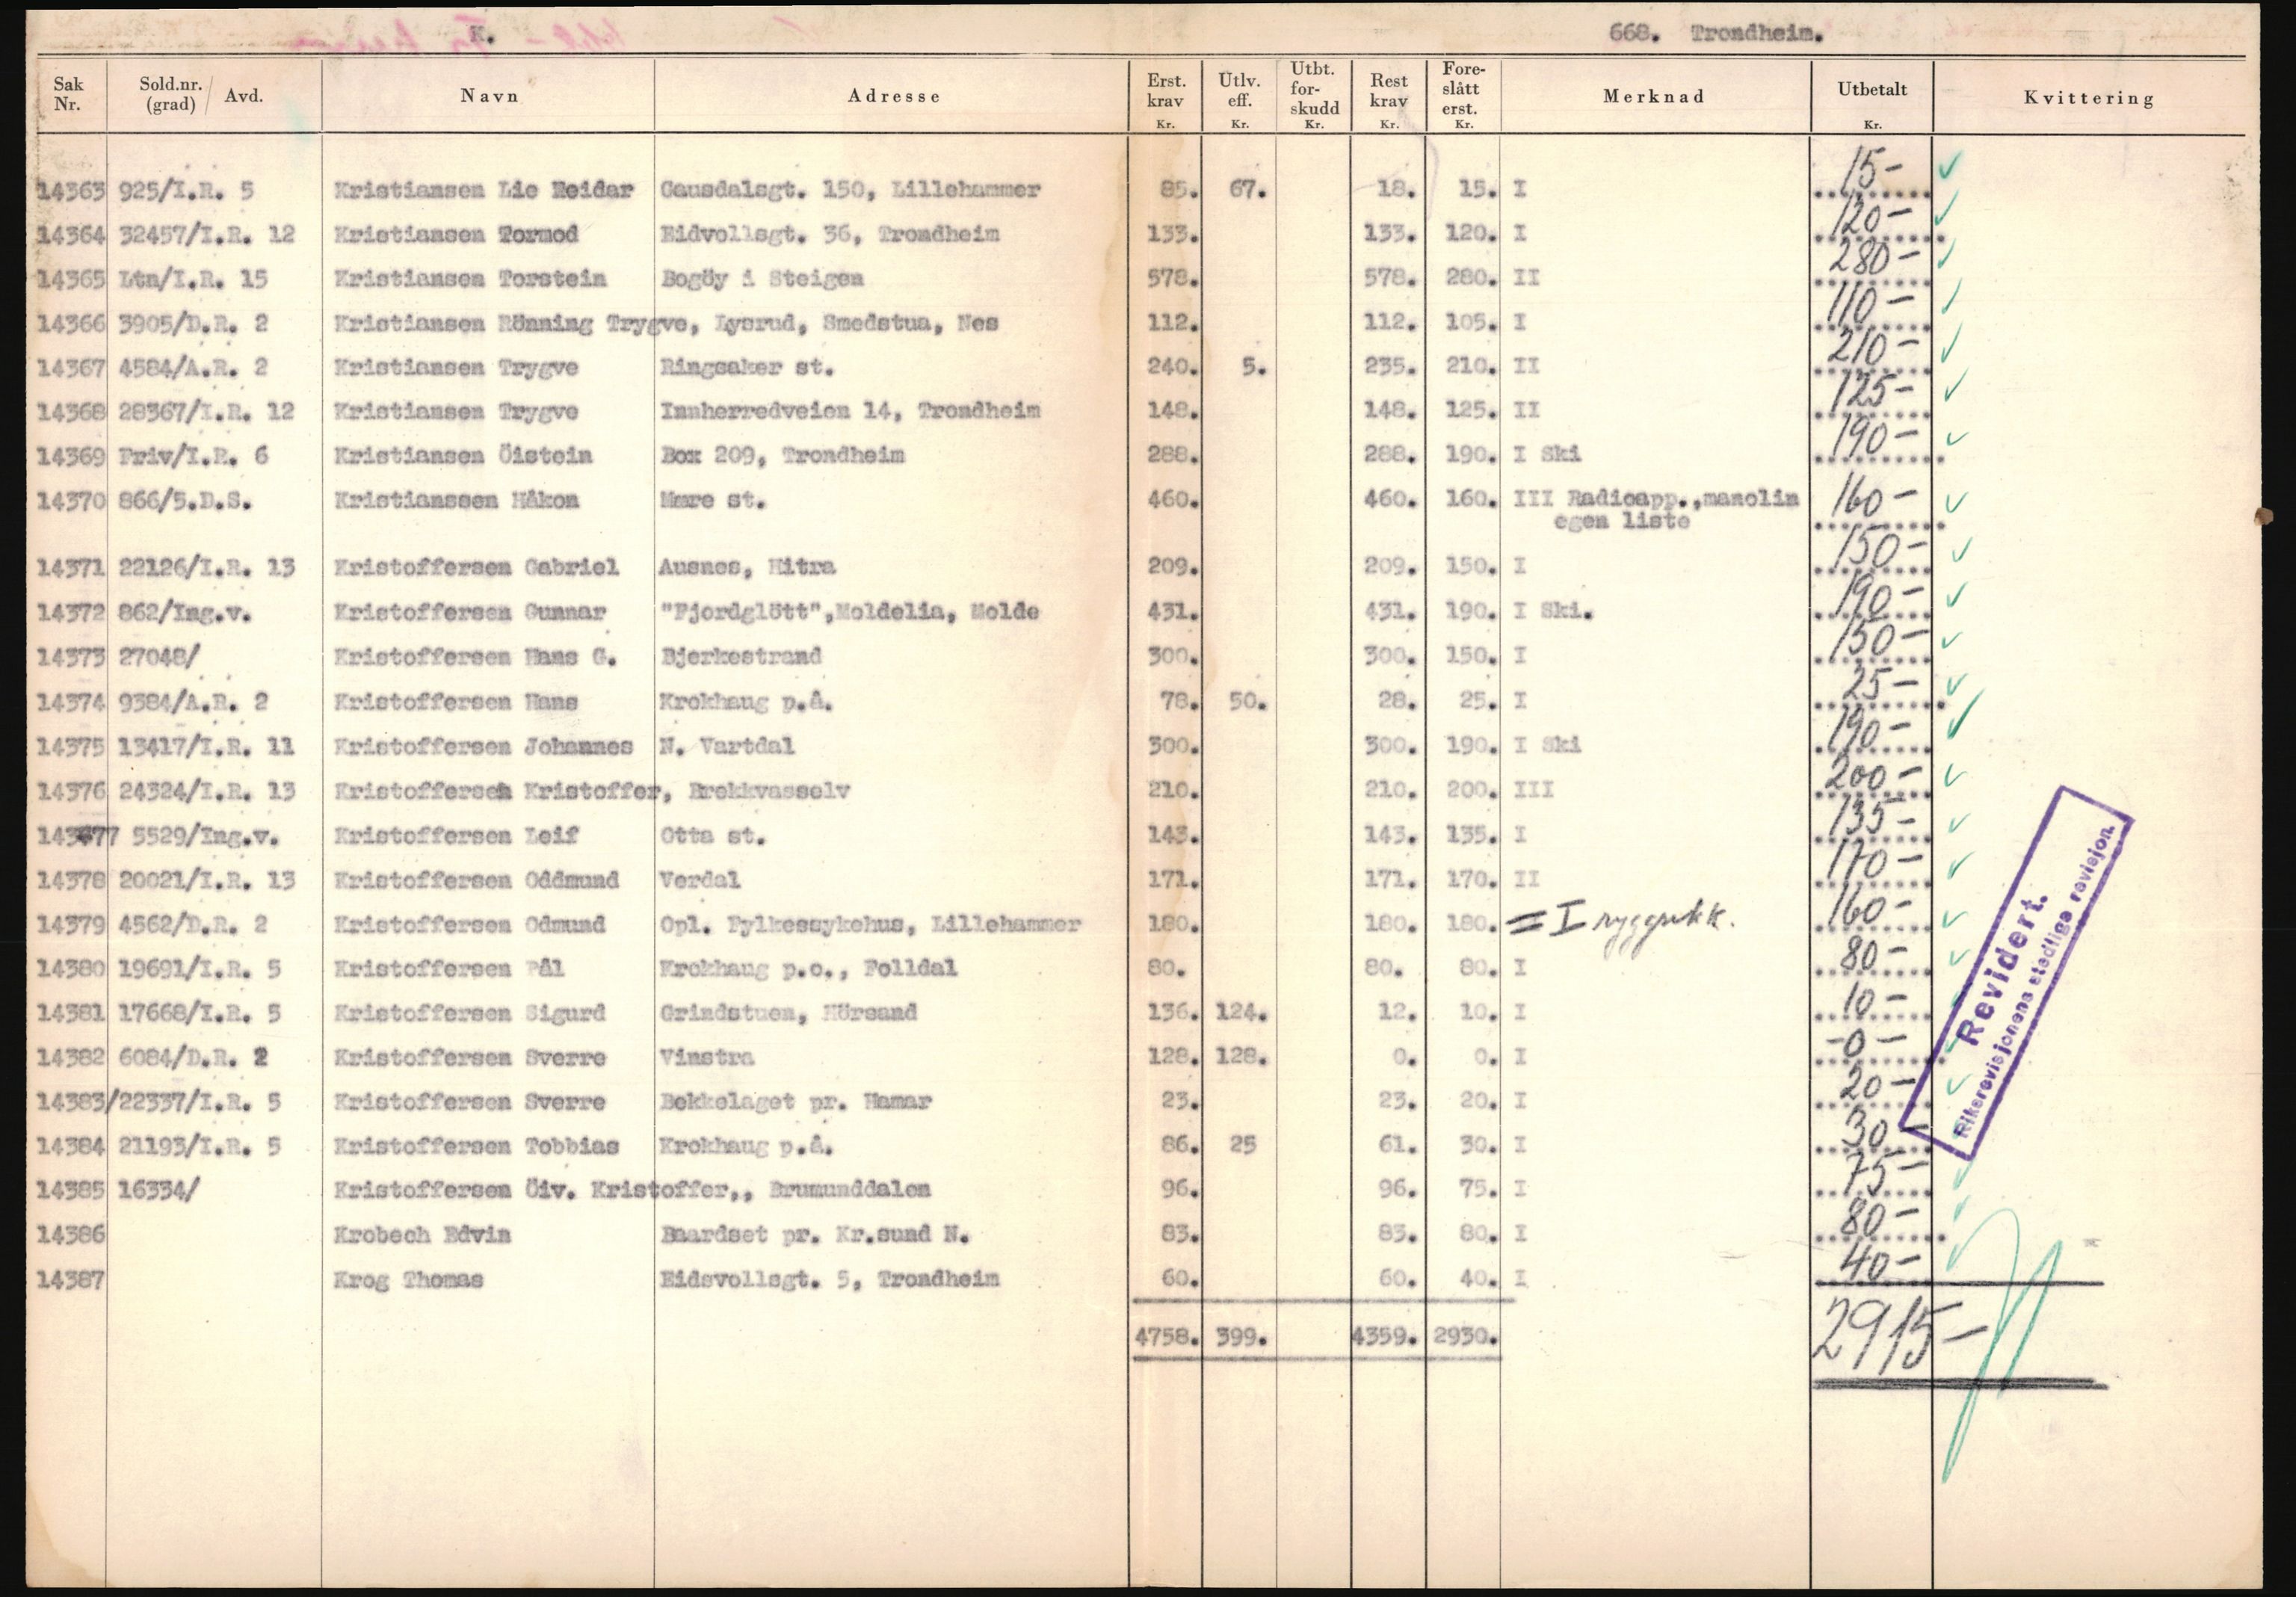 K.
668. Trondheim.
Sak Nr. Sold.nr. (grad) / Avd. Navn Adresse Erst. krav Kr. Utlv. eff. Kr. Utbt. for- skudd Kr. Rest krav Kr. Fore- slått erst. Kr. Merknad Utbetalt Kr. Kvittering
14363 925/I.R. 5 Kristiansen Lie Reidar Gausdalsgt. 150, Lillehammer 85. 67. 18. 15. I 15-
14364 32457/I.R. 12 Kristiansen Tormod Eidvollsgt. 36, Trondheim 133. 133. 120. I 120-
14365 Ltn/I.R. 15 Kristiansen Torstein Bogöy i Steigen 578. 578. 280. II 280-
14366 3905/D.R. 2 Kristiansen Rönning Trygve, Lysrud, Smedstua, Nes 112. 112. 105. I 110-
14367 4584/A.R. 2 Kristiansen Trygve Ringsaker st. 240. 5. 235. 210. II 210-
14368 28367/I.R. 12 Kristiansen Trygve Innherredveien 14, Trondheim 148. 148. 125. II 125-
14369 Friv/I.R. 6 Kristiansen Öistein Box 209, Trondheim 288. 288. 190. I Ski 190-
14370 866/5.D.S. Kristianssen Håkon Mære st. 460. 460. 160. III Radioapp.,manolin 160-
egen liste
14371 22126/I.R. 13 Kristoffersen Gabriel Ausnes, Hitra 209. 209. 150. I 150-
14372 862/Ing.v. Kristoffersen Gunnar "Fjordglött",Moldelia, Molde 431. 431. 190. I Ski. 190-
14373 27048/ Kristoffersen Hans G. Bjerkestrand 300. 300. 150. I 150-
14374 9384/A.R. 2 Kristoffersen Hans Krokhaug p.å. 78. 50. 28. 25. I 25-
14375 13417/I.R. 11 Kristoffersen Johannes N. Vartdal 300. 300. 190. I Ski 190-
14376 24324/I.R. 13 Kristoffersen Kristoffer, Brekkvasselv 210. 210. 200. III 200-
14377 5529/Ing.v. Kristoffersen Leif Otta st. 143. 143. 135. I 135-
14378 20021/I.R. 13 Kristoffersen Oddmund Verdal 171. 171. 170. II 170-
14379 4562/D.R. 2 Kristoffersen Odmund Opl. Fylkessykehus, Lillehammer 180. 180. 180. I 160-
14380 19691/I.R. 5 Kristoffersen Pål Krokhaug p.o., Folldal 80. 80. 80. I 80-
14381 17668/I.R. 5 Kristoffersen Sigurd Grindstuen, Hörsand 136. 124. 12. 10. I 10-
14382 6084/D.R. 2 Kristoffersen Sverre Vinstra 128. 128. 0. 0. I -0-
14383/22337/I.R. 5 Kristoffersen Sverre Bekkelaget pr. Hamar 23. 23. 20. I 20-
14384 21193/I.R. 5 Kristoffersen Tobbias Krokhaug p.å. 86. 25 61. 30. I 30-
14385 16334/ Kristoffersen Öiv. Kristoffer,, Brumunddalen 96. 96. 75. I 75-
14386 Krobech Edvin Baardset pr. Kr.sund N. 83. 83. 80. I 80-
14387 Krog Thomas Eidsvollsgt. 5, Trondheim 60. 60. 40. I 40-
4758. 399. 4359. 2930. 2915-
Revidert.
Riksrevisjonens stedlige revisjon.